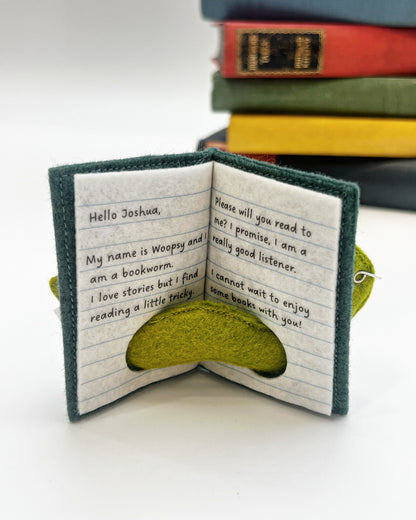 Hello Joshua,
My name is Woopsy and I
am a bookworm.
I love stories but I find
reading a little tricky.
Please will you read to
me? I promise, I am a
really good listener.
I cannot wait to enjoy
some books with you!